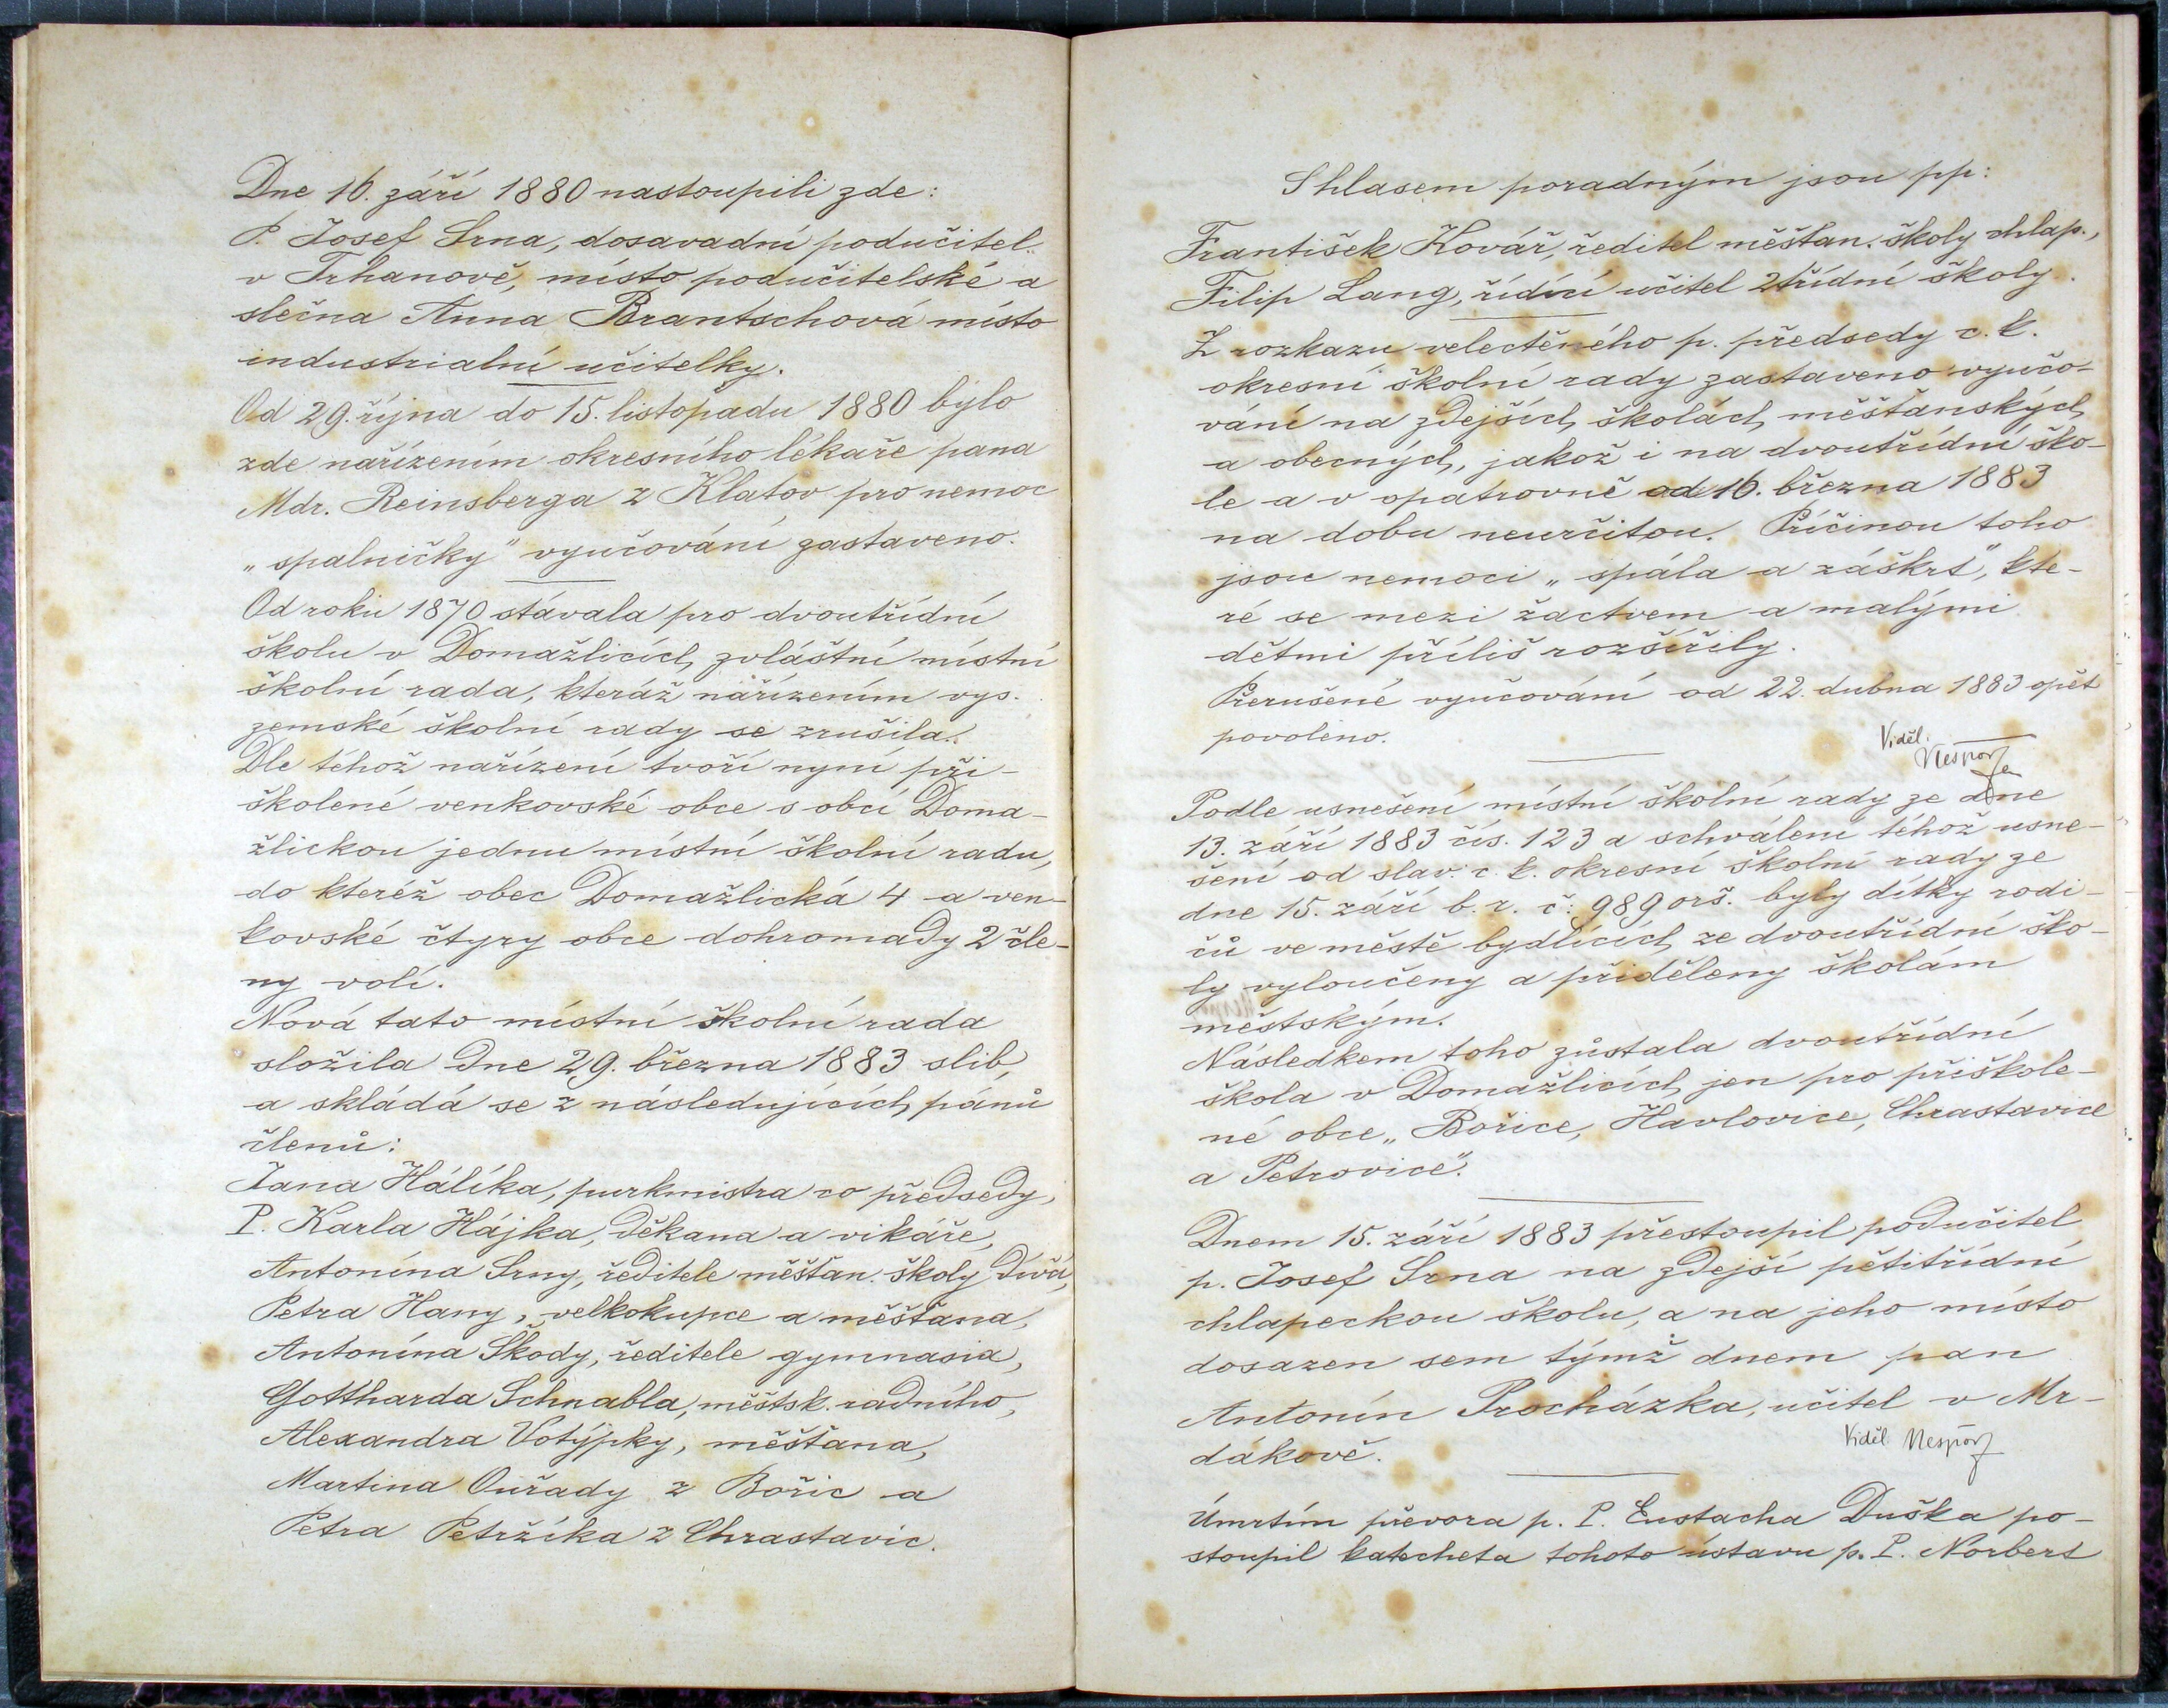 Dne 16. září 1880 nastoupili zde:
P. Josef Srna, dosavadní podučitel
v Trhanově, místo podučitelské a
slečna Anna Brantschová místo
industrialní učitelky.
Od 29. října do 15. listopadu 1880 bylo
zde nařízením okresního lékaře pana
Mdr. Reinsberga z Klatov pro nemoc
„spalničky" vyučování zastaveno.
Od roku 1870 stávala pro dvoutřídní
školu v Domažlicích zvláštní místní
školní rada, kteráž nařízením vys.
zemské školní rady se zrušila.
Dle téhož nařízení tvoří nyní při-
školené venkovské obce s obcí Doma-
žlickou jednu místní školní radu,
do kteréž obec Domažlická 4 a ven-
kovské čtyry obce dohromady 2 čle-
ny volí.
Nová tato místní školní rada
složila dne 29. března 1883 slib,
a skládá se z následujících pánů
členů:
Jana Hálíka, purkmistra co předsedy,
P. Karla Hájka, děkana a vikáře,
Antonína Srny, ředitele měšťan. školy dívčí,
Petra Hany, velkokupce a měšťana,
Antonína Škody, ředitele gymnasia,
Gottharda Schnabla, městsk. radního,
Alexandra Votýpky, měšťana,
Martina Ouřady z Bořic a
Petra Petržíka z Chrastavic.
S hlasem poradným jsou pp:
František Kovář, ředitel měšťan. školy chlap.,
Filip Lang, řídící učitel 2třídní školy.
Z rozkazu velectěného p. předsedy c. k.
okresní školní rady zastaveno vyučo-
vání na zdejších školách měšťanských
a obecných, jakož i na dvoutřídní ško-
le a v opatrovně od 16. března 1883
na dobu neurčitou. Příčinou toho
jsou nemoci „spála a záškrt", kte-
ré se mezi žactvem a malými
dětmi příliš rozšířily.
Přerušené vyučování od 22. dubna 1883 opět
povoleno.
Viděl.
Nespor
Podle usnešení místní školní rady ze dne
13. září 1883 čís. 123 a schválení téhož usne-
šení od slav. c. k. okresní školní rady ze
dne 15. září b. r. č: 989 orš. byly dítky rodi-
čů ve městě bydlících ze dvoutřídní ško-
ly vyloučeny a přiděleny školám
městským.
Následkem toho zůstala dvoutřídní
škola v Domažlicích jen pro přiškole-
né obce „Bořice, Havlovice, Chrastavice
a Petrovice".
Dnem 15. září 1883 přestoupil podučitel
p. Josef Srna na zdejší pětitřídní
chlapeckou školu, a na jeho místo
dosazen sem týmž dnem pan
Antonín Procházka, učitel v Mr-
dákově.
Viděl Nespor
Úmrtím převora p. P. Eustacha Duška po-
stoupil katecheta tohoto ústavu p. P. Norbert